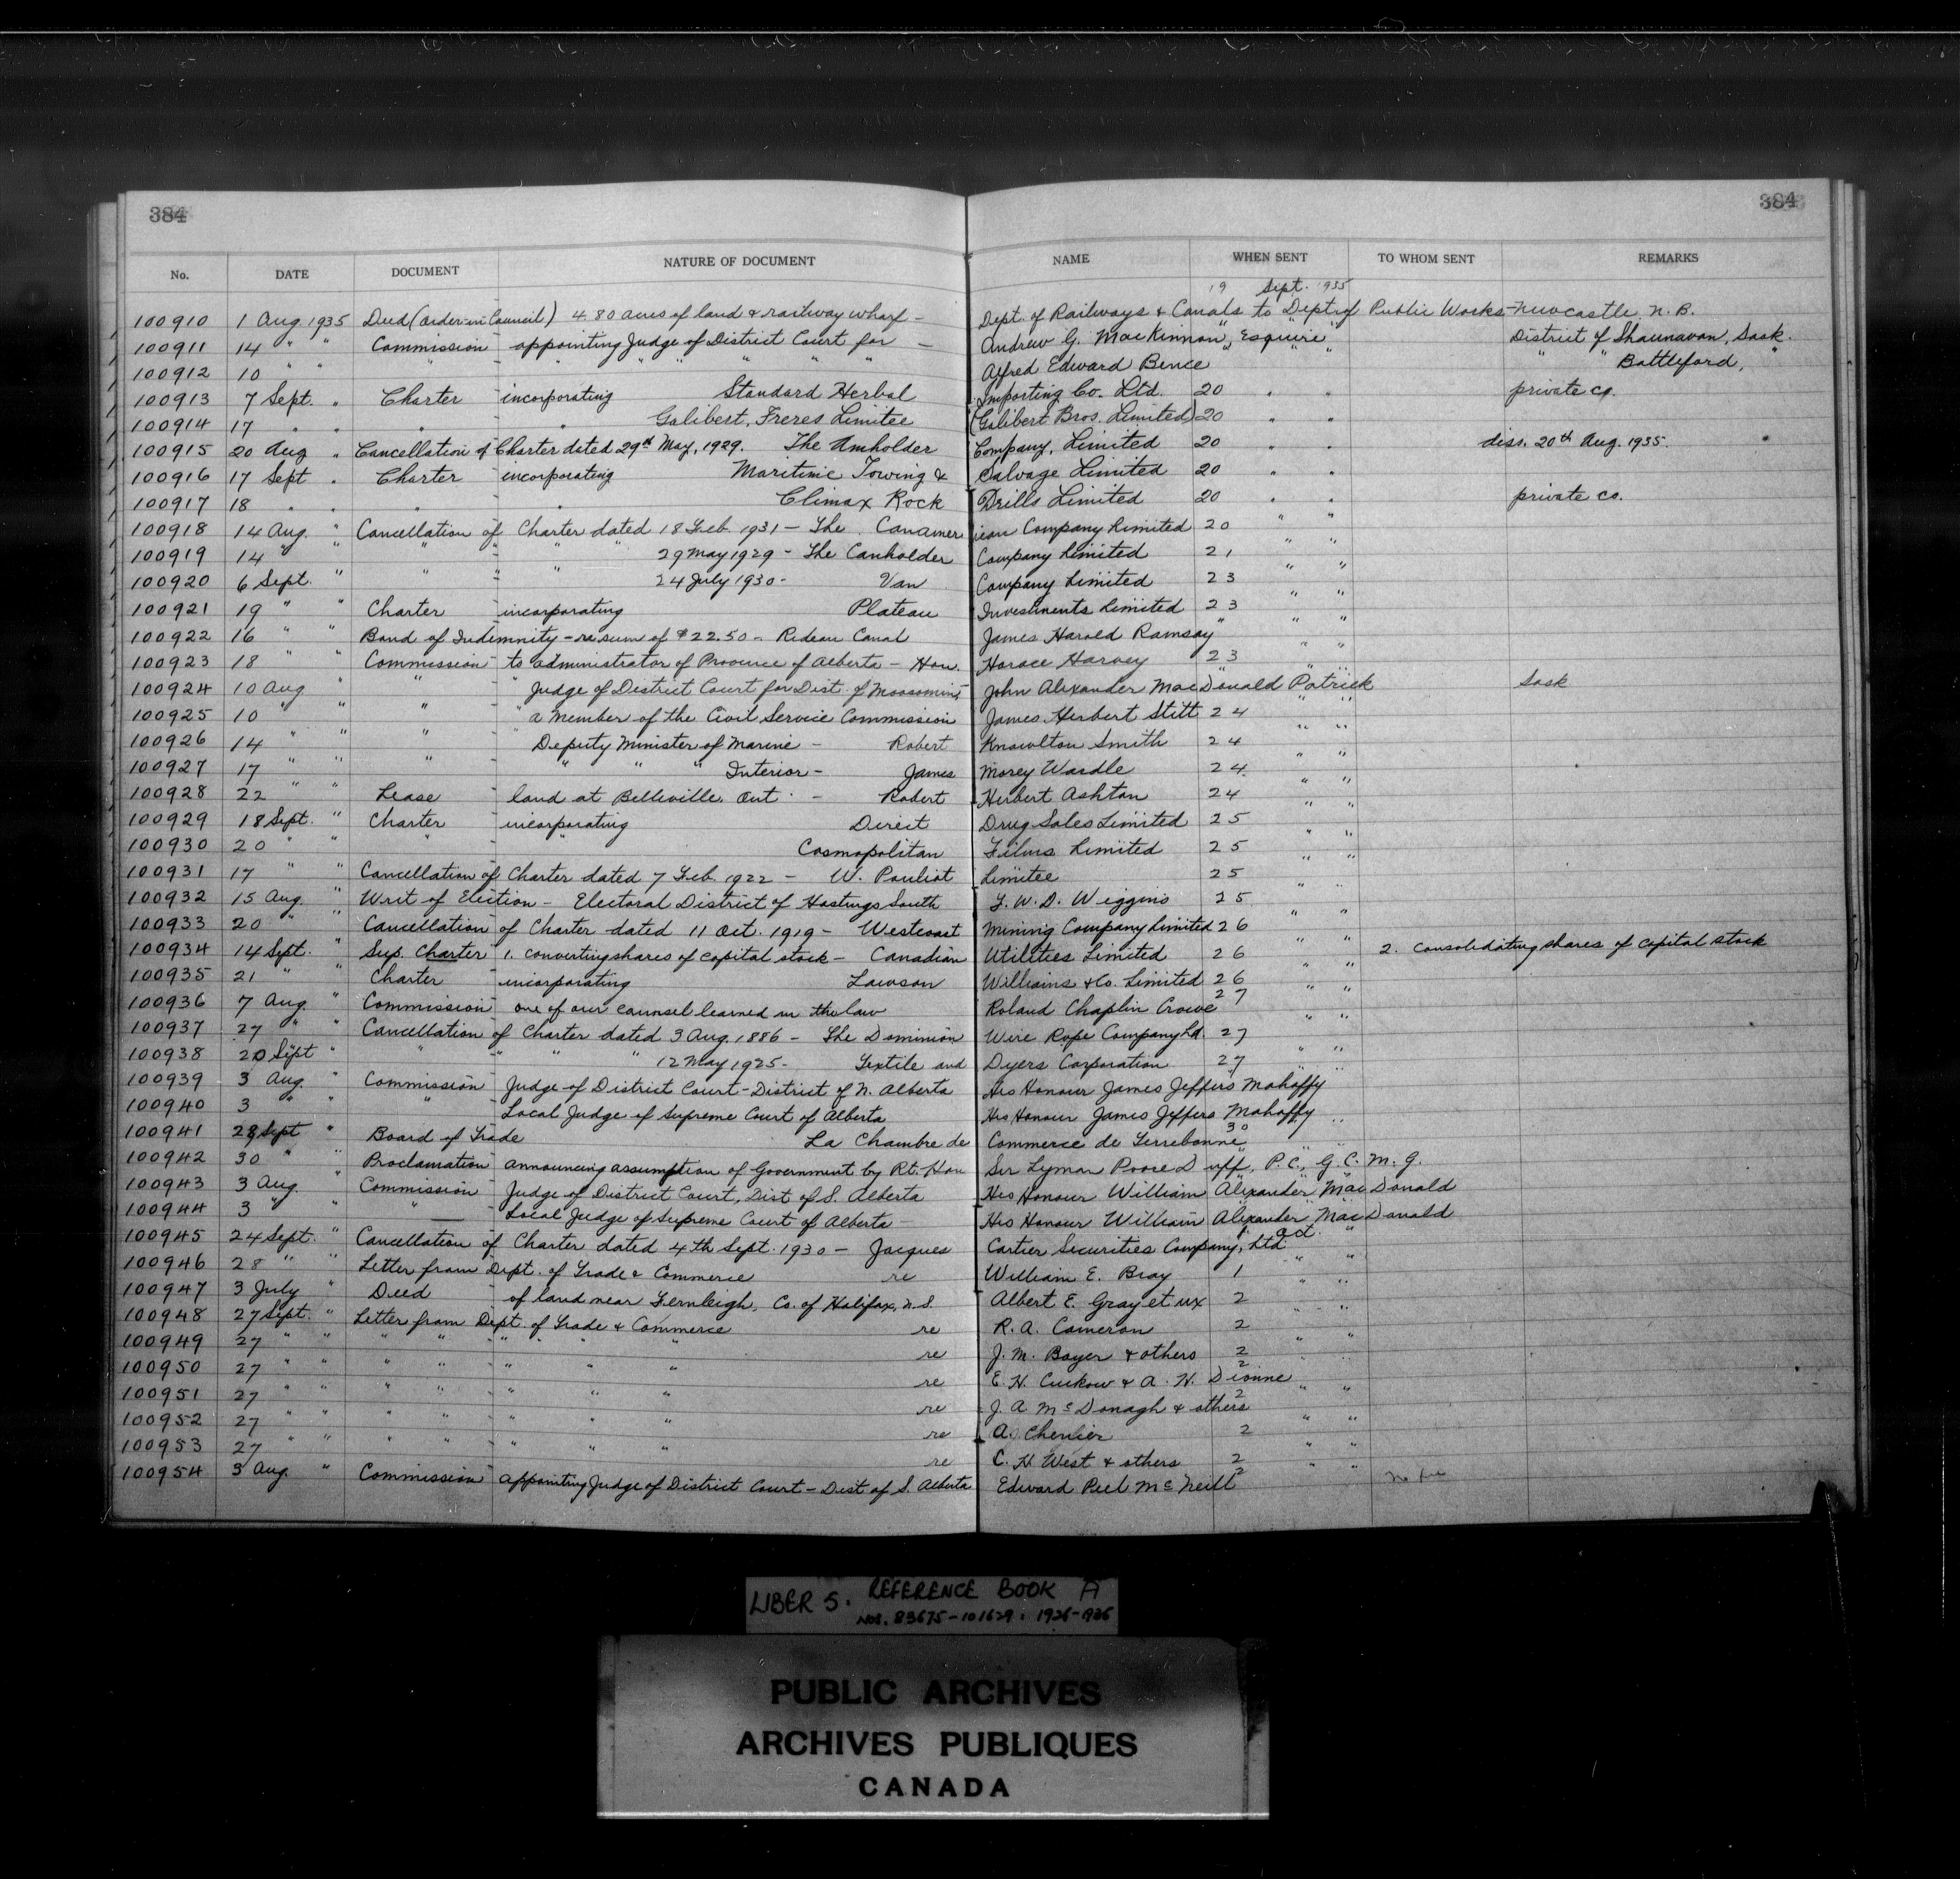 384 384
No. DATE DOCUMENT NATURE OF DOCUMENT NAME WHEN SENT TO WHOM SENT REMARKS
19 Sept. 1935
100910 1 Aug. 1935 Deed (Order-in-Council) 4.80 acres of land & railway wharf - Dept. of Railways & Canals to Dept. of Public Works - Newcastle, N.B.
100911 14 " " Commission appointing Judge of District Court for - Andrew G. MacKinnon, Esquire " " District of Shaunavon, Sask.
100912 10 " " " " " " " " " Alfred Edward Bence " " " Battleford, "
100913 7 Sept. " Charter incorporating Standard Herbal Importing Co. Ltd. 20 " " private co.
100914 17 " " " " Galibert, Freres Limitee (Galibert Bros. Limited) 20 " "
100915 20 Aug " Cancellation of Charter dated 29th May, 1929. The Amholder Company, Limited 20 " " diss. 20th Aug. 1935.
100916 17 Sept " Charter incorporating Maritime Towing & Salvage Limited 20 " "
100917 18 " " " " Climax Rock Drills Limited 20 " " private co.
100918 14 Aug. " Cancellation of Charter dated 18 Feb. 1931 - The Canamerican Company Limited 20 " "
100919 14 " " " " " " 29 May 1929 - The Canholder Company Limited 21 " "
100920 6 Sept. " " " " 24 July 1930 - Van Company Limited 23 " "
100921 19 " " Charter incorporating Plateau Investments Limited 23 " "
100922 16 " " Bond of Indemnity - re sum of $22.50 - Rideau Canal James Harold Ramsay " "
100923 18 " " Commission to administrator of Province of Alberta - Hon. Horace Harvey 23 " "
100924 10 Aug " " " Judge of District Court for Dist. of Moosomin, John Alexander MacDonald Patrick " " Sask
100925 10 " " " " a member of the Civil Service Commission James Herbert Stitt 24 " "
100926 14 " " " Deputy Minister of Marine - Robert Knowlton Smith 24 " "
100927 17 " " " " " " Interior - James Morey Wardle 24 " "
100928 22 " " Lease land at Belleville, Ont. - Robert Herbert Ashton 24 " "
100929 18 Sept. " Charter incorporating Direct Drug Sales Limited 25 " "
100930 20 " " " " Cosmopolitan Films Limited 25 " "
100931 17 " " Cancellation of Charter dated 7 Feb. 1922 - W. Pouliot Limitee 25 " "
100932 15 Aug. " Writ of Election - Electoral District of Hastings South F. W. D. Wiggins 25 " "
100933 20 " " Cancellation of Charter dated 11 Oct. 1919 - Westcoast Mining Company Limited 26 " "
100934 14 Sept. " Sup. Charter 1. converting shares of capital stock - Canadian Utilities Limited 26 " " 2. consolidating shares of capital stock
100935 21 " " Charter incorporating Lawson Williams & Co. Limited 26 " "
100936 7 Aug. " Commission one of our counsel learned in the law Roland Chaplin Crowe 27 " "
100937 27 " " Cancellation of Charter dated 3 Aug. 1886 - The Dominion Wire Rope Company Ld. 27 " "
100938 20 Sept " " " " " 12 May 1925 - Textile and Dyers Corporation 27 " "
100939 3 Aug. " Commission Judge of District Court - District of N. Alberta His Honour James Jeffers Mahaffy
100940 3 " " " Local Judge of Supreme Court of Alberta His Honour James Jeffers Mahaffy " "
100941 28 Sept " Board of Trade La Chambre de Commerce de Terrebonne 30 " "
100942 30 " " Proclamation announcing assumption of Government by Rt. Hon Sir Lyman Poore Duff, P.C., G.C.M.G.
100943 3 Aug. " Commission Judge of District Court, Dist of S. Alberta His Honour William Alexander MacDonald
100944 3 " " " Local Judge of Supreme Court of Alberta - His Honour William Alexander MacDonald
100945 24 Sept. " Cancellation of Charter dated 4th Sept. 1930 - Jacques Cartier Securities Company, Ltd. 1 Oct. "
100946 28 " " Letter from Dept. of Trade & Commerce re William E. Bray 1 " "
100947 3 July " Deed of land near Fernleigh, Co. of Halifax, N.S. Albert E. Gray et ux 2 " "
100948 27 Sept. " Letter from Dept. of Trade & Commerce re R. A. Cameron 2 " "
100949 27 " " " " " " " re J. M. Boyer & others 2 " "
100950 27 " " " " " " " re E. H. Cuckow & A. H. Dionne 2
100951 27 " " " " " " " re J. A. McDonagh & others 2 " "
100952 27 " " " " " " " re A. Chenier 2 " "
100953 27 " " " " " " " re C. H. West & others 2 " "
100954 3 Aug. " Commission appointing Judge of District Court - Dist of S. Alberta Edward Peel McNeill 2 " " no fee
LIBER 5. REFERENCE BOOK A
NOS. 83675-101629: 1926-1936
PUBLIC ARCHIVES
ARCHIVES PUBLIQUES
CANADA